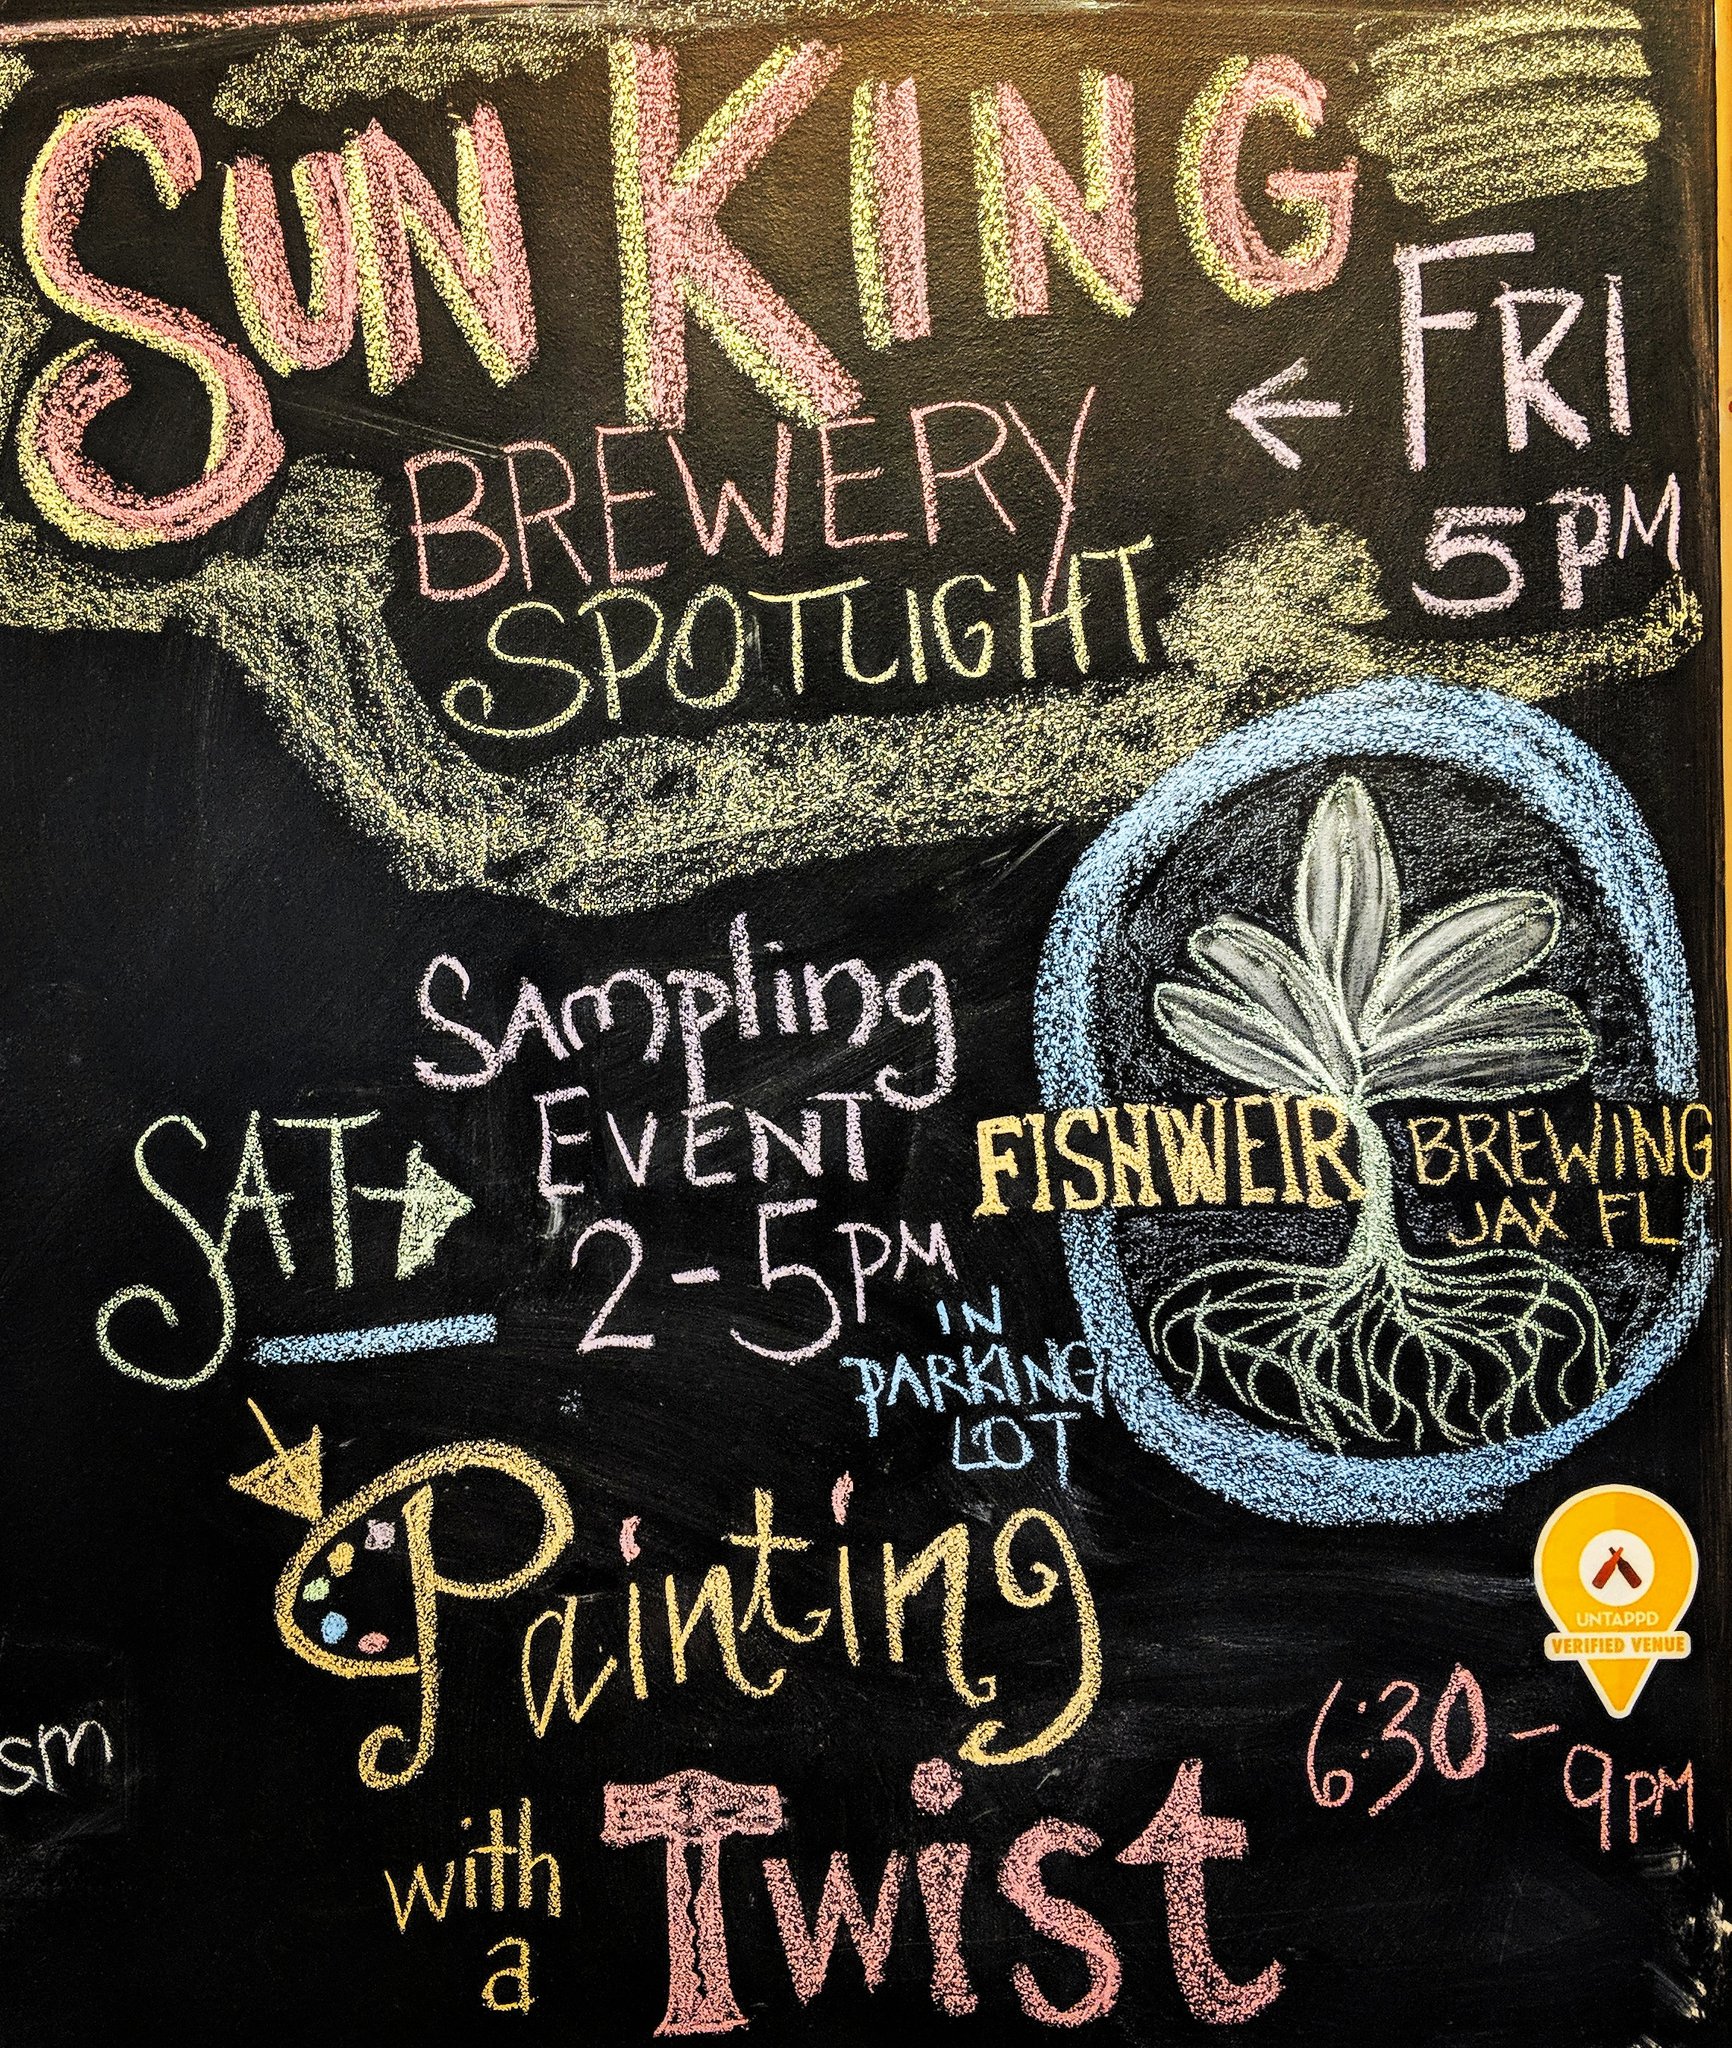 SUN KING
FRI
BREWERY
5PM
SPOTLIGHT
SAmpling
EVENT
SAT
2-5PM
IN
PARKING
LOT
FISHWEIR BREWING
JAX FL
Painting
UNTAPPD
VERIFIED VENUE
with
a
Twist
6:30-
9PM
sm